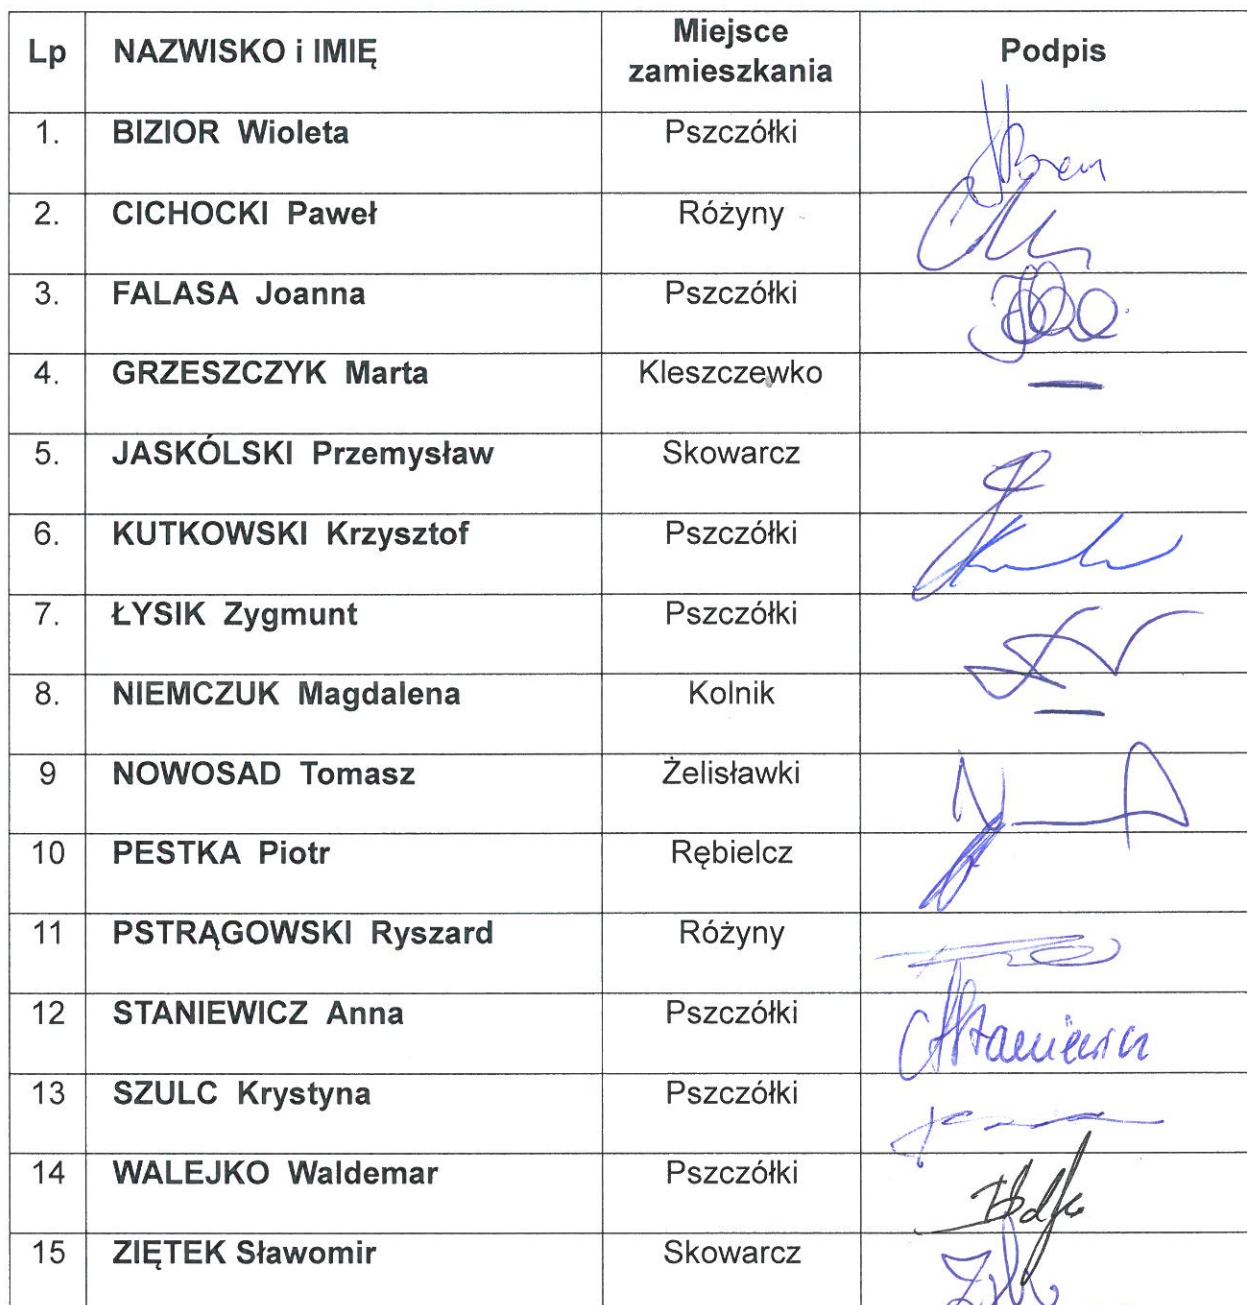 Lp NAZWISKO i IMIĘ Miejsce zamieszkania Podpis
1. BIZIOR Wioleta Pszczółki
2. CICHOCKI Paweł Różyny
3. FALASA Joanna Pszczółki
4. GRZESZCZYK Marta Kleszczewko —
5. JASKÓLSKI Przemysław Skowarcz
6. KUTKOWSKI Krzysztof Pszczółki
7. ŁYSIK Zygmunt Pszczółki
8. NIEMCZUK Magdalena Kolnik —
9 NOWOSAD Tomasz Żelisławki
10 PESTKA Piotr Rębielcz
11 PSTRĄGOWSKI Ryszard Różyny
12 STANIEWICZ Anna Pszczółki
13 SZULC Krystyna Pszczółki
14 WALEJKO Waldemar Pszczółki
15 ZIĘTEK Sławomir Skowarcz